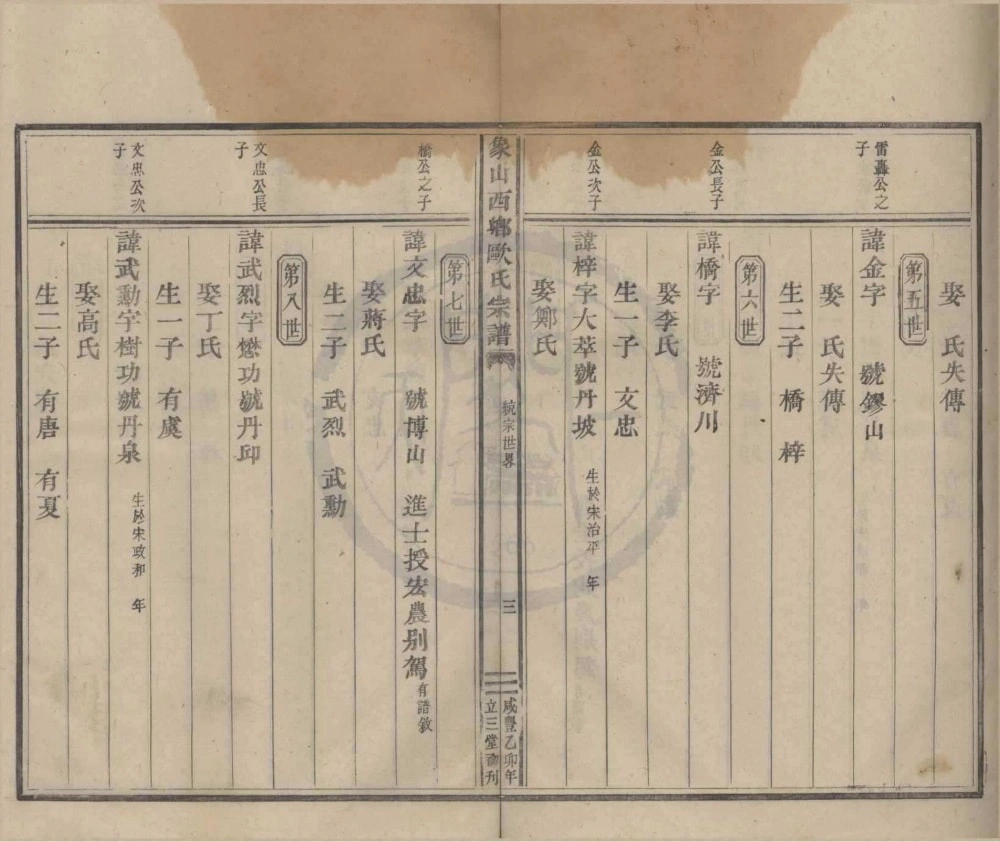 娶　氏失傳
第五世
雷轟公之子
諱金字　號鏐山
娶　氏失傳
生二子　橋　梓
第六世
金公長子
諱橋字　號濟川
娶李氏
生一子　文忠
金公次子
諱梓字大萃號丹坡　生於宋治平　年
娶鄭氏
象山西鄉歐氏宗譜
統宗世畧
三
咸豐乙卯年
立三堂刊
第七世
橋公之子
諱文忠字　號博山　進士授宏農别駕有譜敘
娶蔣氏
生二子　武烈　武勳
第八世
文忠公長子
諱武烈字懋功號丹邱
娶丁氏
生一子　有虞
文忠公次子
諱武勳字樹功號丹泉　生於宋政和　年
娶高氏
生二子　有唐　有夏